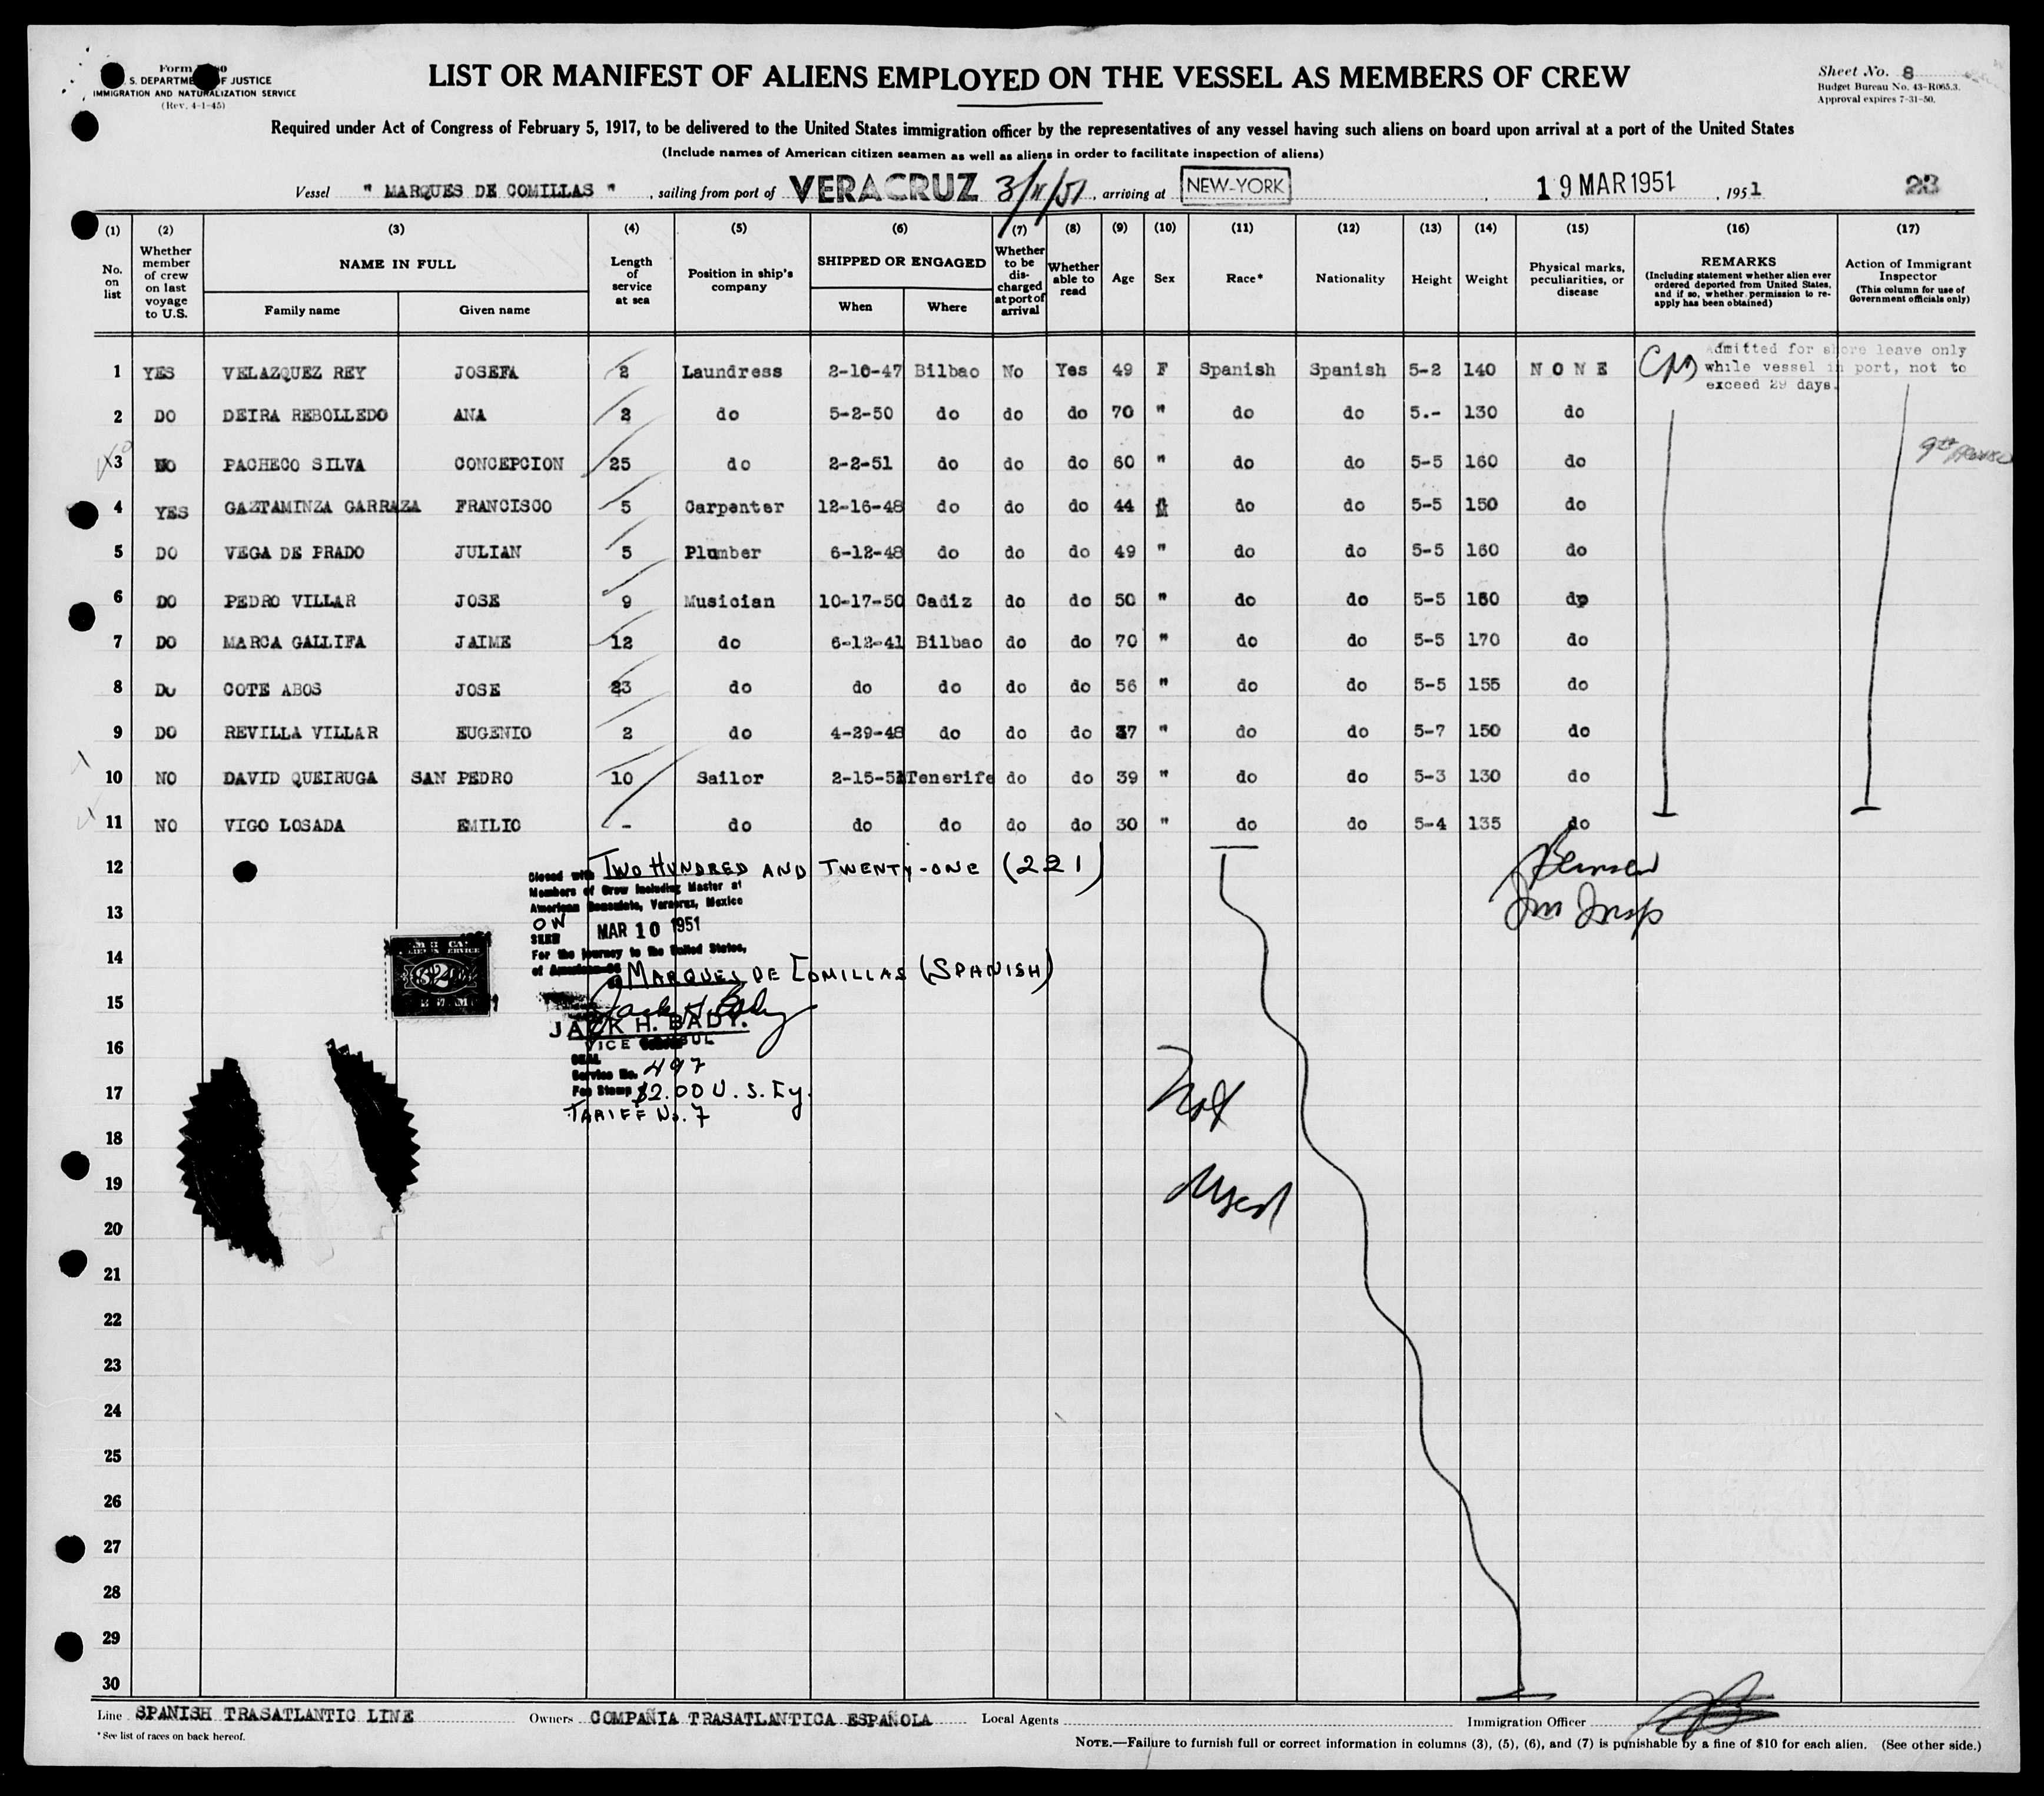 Form
U. S. DEPARTMENT OF JUSTICE
IMMIGRATION AND NATURALIZATION SERVICE
(Rev. 4-1-45)
LIST OR MANIFEST OF ALIENS EMPLOYED ON THE VESSEL AS MEMBERS OF CREW
Sheet No. 8
Budget Bureau No. 43-R065.3.
Approval expires 7-31-50.
Required under Act of Congress of February 5, 1917, to be delivered to the United States immigration officer by the representatives of any vessel having such aliens on board upon arrival at a port of the United States
(Include names of American citizen seamen as well as aliens in order to facilitate inspection of aliens)
Vessel " MARQUES DE COMILLAS ", sailing from port of VERACRUZ 3/11/51, arriving at NEW-YORK, 19 MAR 1951, 1951 23
(1) (2) (3) (4) (5) (6) (7) (8) (9) (10) (11) (12) (13) (14) (15) (16) (17)
No. on list
Whether member of crew on last voyage to U.S.
NAME IN FULL
Family name
Given name
Length of service at sea
Position in ship's company
SHIPPED OR ENGAGED
When
Where
Whether to be discharged at port of arrival
Whether able to read
Age
Sex
Race*
Nationality
Height
Weight
Physical marks, peculiarities, or disease
REMARKS
(Including statement whether alien ever ordered deported from United States, and if so, whether permission to reapply has been obtained)
Action of Immigrant Inspector
(This column for use of Government officials only)
Admitted for shore leave only
while vessel in port, not to
exceed 29 days.
1 YES VELAZQUEZ REY JOSEFA 2 Laundress 2-10-47 Bilbao No Yes 49 F Spanish Spanish 5-2 140 NONE
2 DO DEIRA REBOLLEDO ANA 2 do 5-2-50 do do do 70 " do do 5.- 130 do
3 NO PACHECO SILVA CONCEPCION 25 do 2-2-51 do do do 60 " do do 5-5 160 do
4 YES GAZTAMINZA GARRAZA FRANCISCO 5 Carpenter 12-16-48 do do do 44 do do 5-5 150 do
5 DO VEGA DE PRADO JULIAN 5 Plumber 6-12-48 do do do 49 " do do 5-5 160 do
6 DO PEDRO VILLAR JOSE 9 Musician 10-17-50 Cadiz do do 50 " do do 5-5 do
7 DO MARCA GALLIFA JAIME 12 do 6-12-41 Bilbao do do 70 " do do 5-5 170 do
8 DO COTE ABOS JOSE 23 do do do do do 56 " do do 5-5 155 do
9 DO REVILLA VILLAR EUGENIO 2 do 4-29-48 do do do 37 " do do 5-7 150 do
10 NO DAVID QUEIRUGA SAN PEDRO 10 Sailor 2-15-51 Tenerife do do 39 " do do 5-3 130 do
11 NO VIGO LOSADA EMILIO - do do do do do 30 " do do 5-4 135 do
12
13
14
15
16
17
18
19
20
21
22
23
24
25
26
27
28
29
30
Closed with TWO HUNDRED AND TWENTY-ONE (221)
Members of Crew including Master at
American Consulate, Veracruz, Mexico
ON MAR 10 1951
SEEN
For the journey to the United States,
MARQUES DE COMILLAS (SPANISH)
Jack H. Bady
JACK H. BADY.
VICE CONSUL
SEAL
Service No. 497
Fee Stamp $2.00 U.S. Cy.
TARIFF No. 7
Imm Insp
Not
Used
Line SPANISH TRASATLANTIC LINE Owners COMPAÑIA TRASATLANTICA ESPAÑOLA Local Agents Immigration Officer
*See list of races on back hereof.
NOTE.—Failure to furnish full or correct information in columns (3), (5), (6), and (7) is punishable by a fine of $10 for each alien. (See other side.)